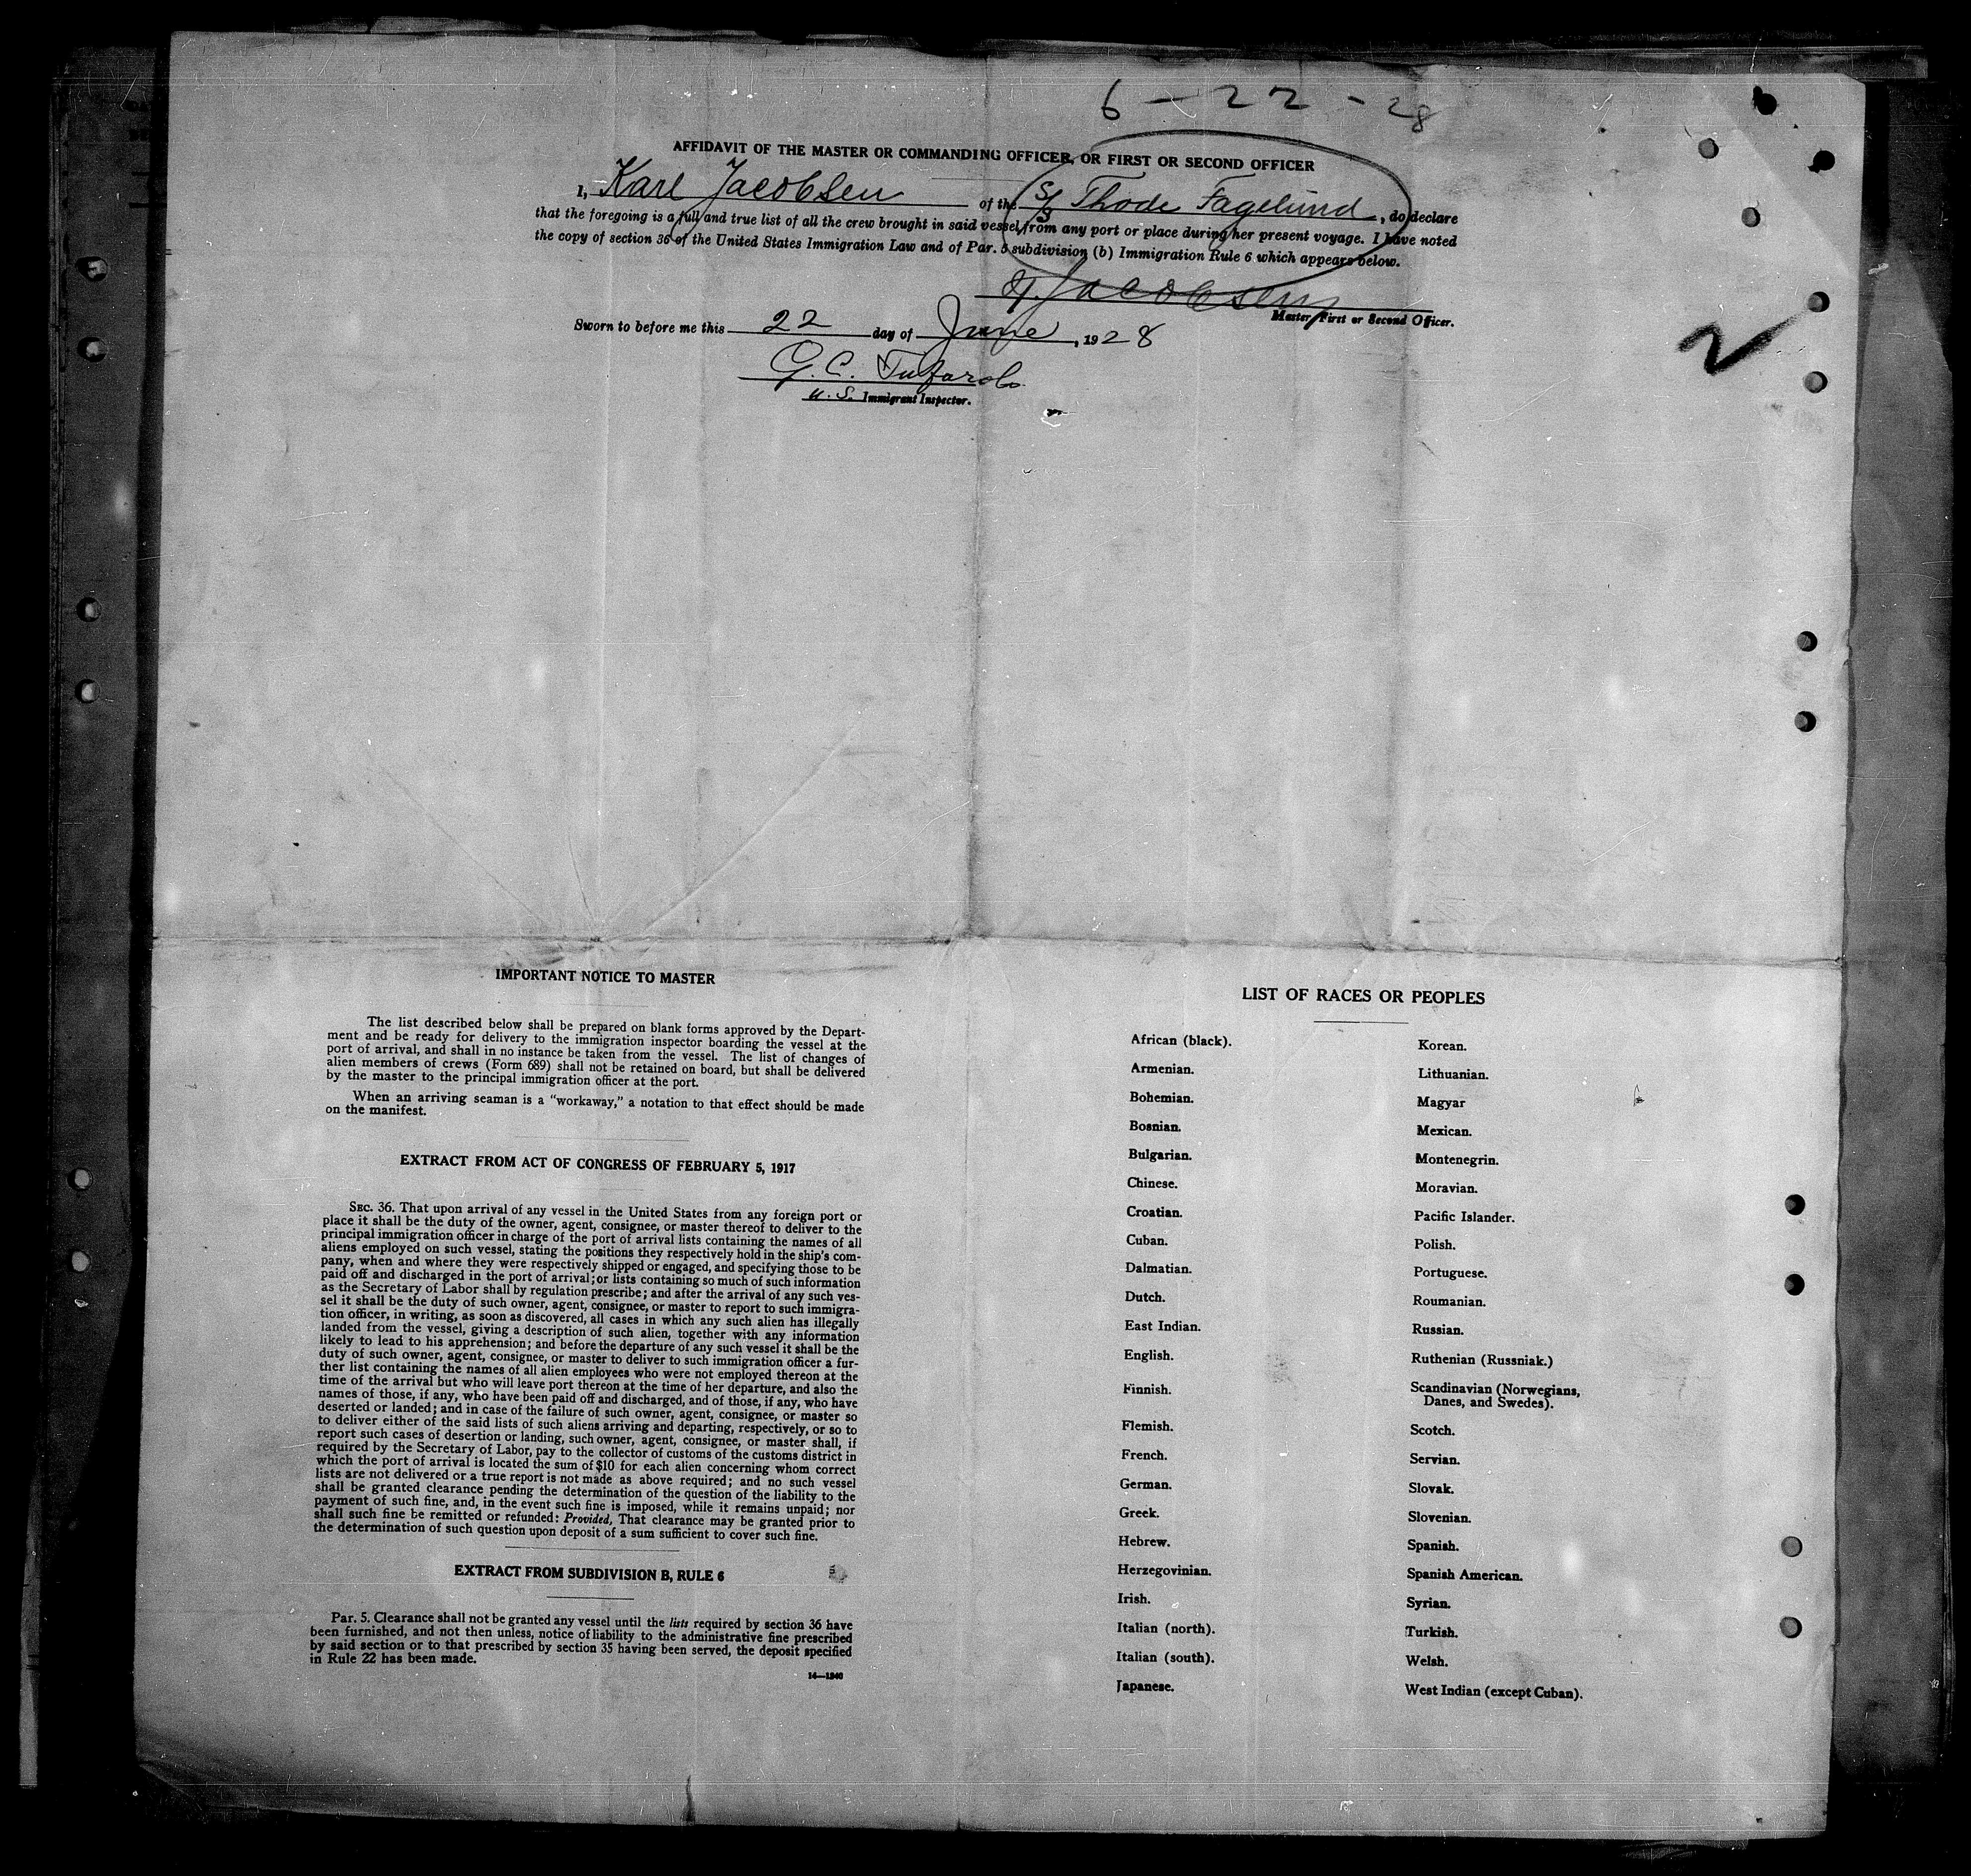 6-22-28
AFFIDAVIT OF THE MASTER OR COMMANDING OFFICER, OR FIRST OR SECOND OFFICER
I, Karl Jacobsen of the S/S Thode Fagelund, do declare
that the foregoing is a full and true list of all the crew brought in said vessel from any port or place during her present voyage. I have noted
the copy of section 36 of the United States Immigration Law and of Par. 5 subdivision (b) Immigration Rule 6 which appears below.
Jacobsen
Master, First or Second Officer.
Sworn to before me this 22 day of June, 1928
2
G. C. Tufarolo
U. S. Immigrant Inspector.
IMPORTANT NOTICE TO MASTER
The list described below shall be prepared on blank forms approved by the Depart-
ment and be ready for delivery to the immigration inspector boarding the vessel at the
port of arrival, and shall in no instance be taken from the vessel. The list of changes of
alien members of crews (Form 689) shall not be retained on board, but shall be delivered
by the master to the principal immigration officer at the port.
When an arriving seaman is a "workaway," a notation to that effect should be made
on the manifest.
EXTRACT FROM ACT OF CONGRESS OF FEBRUARY 5, 1917
SEC. 36. That upon arrival of any vessel in the United States from any foreign port or
place it shall be the duty of the owner, agent, consignee, or master thereof to deliver to the
principal immigration officer in charge of the port of arrival lists containing the names of all
aliens employed on such vessel, stating the positions they respectively hold in the ship's com-
pany, when and where they were respectively shipped or engaged, and specifying those to be
paid off and discharged in the port of arrival; or lists containing so much of such information
as the Secretary of Labor shall by regulation prescribe; and after the arrival of any such ves-
sel it shall be the duty of such owner, agent, consignee, or master to report to such immigra-
tion officer, in writing, as soon as discovered, all cases in which any such alien has illegally
landed from the vessel, giving a description of such alien, together with any information
likely to lead to his apprehension; and before the departure of any such vessel it shall be the
duty of such owner, agent, consignee, or master to deliver to such immigration officer a fur-
ther list containing the names of all alien employees who were not employed thereon at the
time of the arrival but who will leave port thereon at the time of her departure, and also the
names of those, if any, who have been paid off and discharged, and of those, if any, who have
deserted or landed; and in case of the failure of such owner, agent, consignee, or master so
to deliver either of the said lists of such aliens arriving and departing, respectively, or so to
report such cases of desertion or landing, such owner, agent, consignee, or master shall, if
required by the Secretary of Labor, pay to the collector of customs of the customs district in
which the port of arrival is located the sum of $10 for each alien concerning whom correct
lists are not delivered or a true report is not made as above required; and no such vessel
shall be granted clearance pending the determination of the question of the liability to the
payment of such fine, and, in the event such fine is imposed, while it remains unpaid; nor
shall such fine be remitted or refunded: Provided, That clearance may be granted prior to
the determination of such question upon deposit of a sum sufficient to cover such fine.
EXTRACT FROM SUBDIVISION B, RULE 6
Par. 5. Clearance shall not be granted any vessel until the lists required by section 36 have
been furnished, and not then unless, notice of liability to the administrative fine prescribed
by said section or to that prescribed by section 35 having been served, the deposit specified
in Rule 22 has been made.
14—1240
LIST OF RACES OR PEOPLES
African (black).
Armenian.
Bohemian.
Bosnian.
Bulgarian.
Chinese.
Croatian.
Cuban.
Dalmatian.
Dutch.
East Indian.
English.
Finnish.
Flemish.
French.
German.
Greek.
Hebrew.
Herzegovinian.
Irish.
Italian (north).
Italian (south).
Japanese.
Korean.
Lithuanian.
Magyar
Mexican.
Montenegrin.
Moravian.
Pacific Islander.
Polish.
Portuguese.
Roumanian.
Russian.
Ruthenian (Russniak.)
Scandinavian (Norwegians,
Danes, and Swedes).
Scotch.
Servian.
Slovak.
Slovenian.
Spanish.
Spanish American.
Syrian.
Turkish.
Welsh.
West Indian (except Cuban).